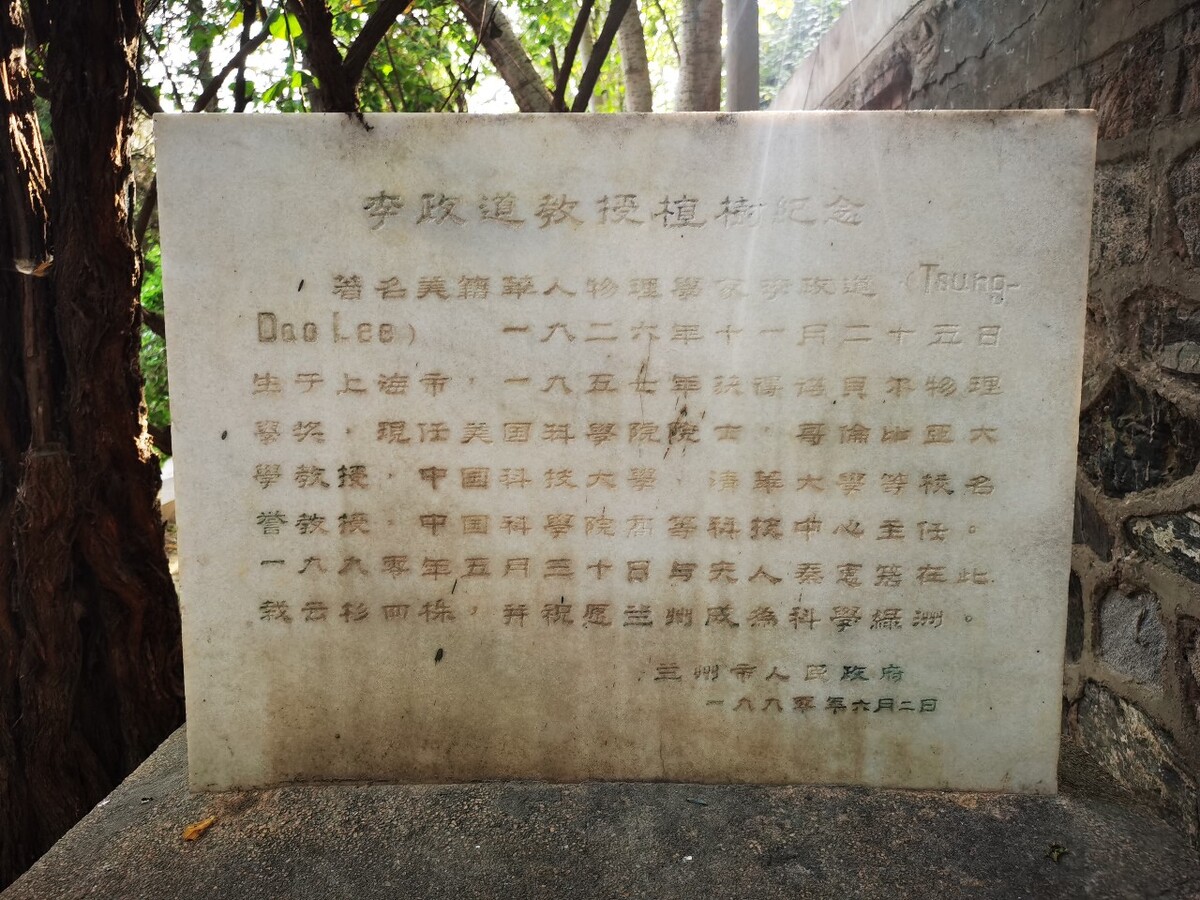 李政道教授植樹紀念
著名美籍華人物理學家李政道(Tsung-
Dao Lee) 一九二六年十一月二十五日
生于上海市,一九五七年获得诺貝尔物理
學奖,現任美国科學院院士,哥倫比亚大
學教授,中國科技大學,清華大學等校名
誉教授,中国科學院高等科技中心主任。
一九九零年五月三十日与夫人秦惠䇹在此
栽云杉四株,并祝愿兰州成為科學綠洲。
兰州市人民政府
一九九零年六月二日